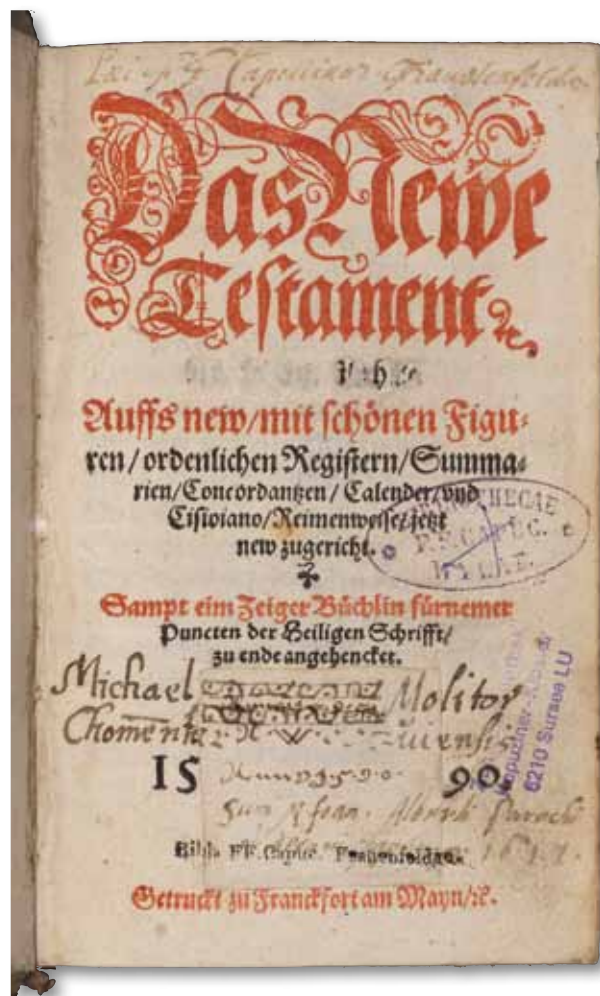 Das Newe
Testament ꝛc.
Auffs new/mit schönen Figu⸗
ren/ordenlichen Registern/Summa⸗
rien/Concordantzen/Calender/vnd
Cisioiano/Reimenweise/jetzt
new zugericht.
BIBLIOTHECAE
Sampt eim Zeiger Büchlin fürnemer
Puncten der Heiligen Schrifft/
zu ende angehencket.
Michael Molitor
6210 Sursee LU
15 90.
Anno 1590.
Bibl. FF. Capuc. Frauenfeldae.
Getruckt zu Franckfort am Mayn/ꝛc.